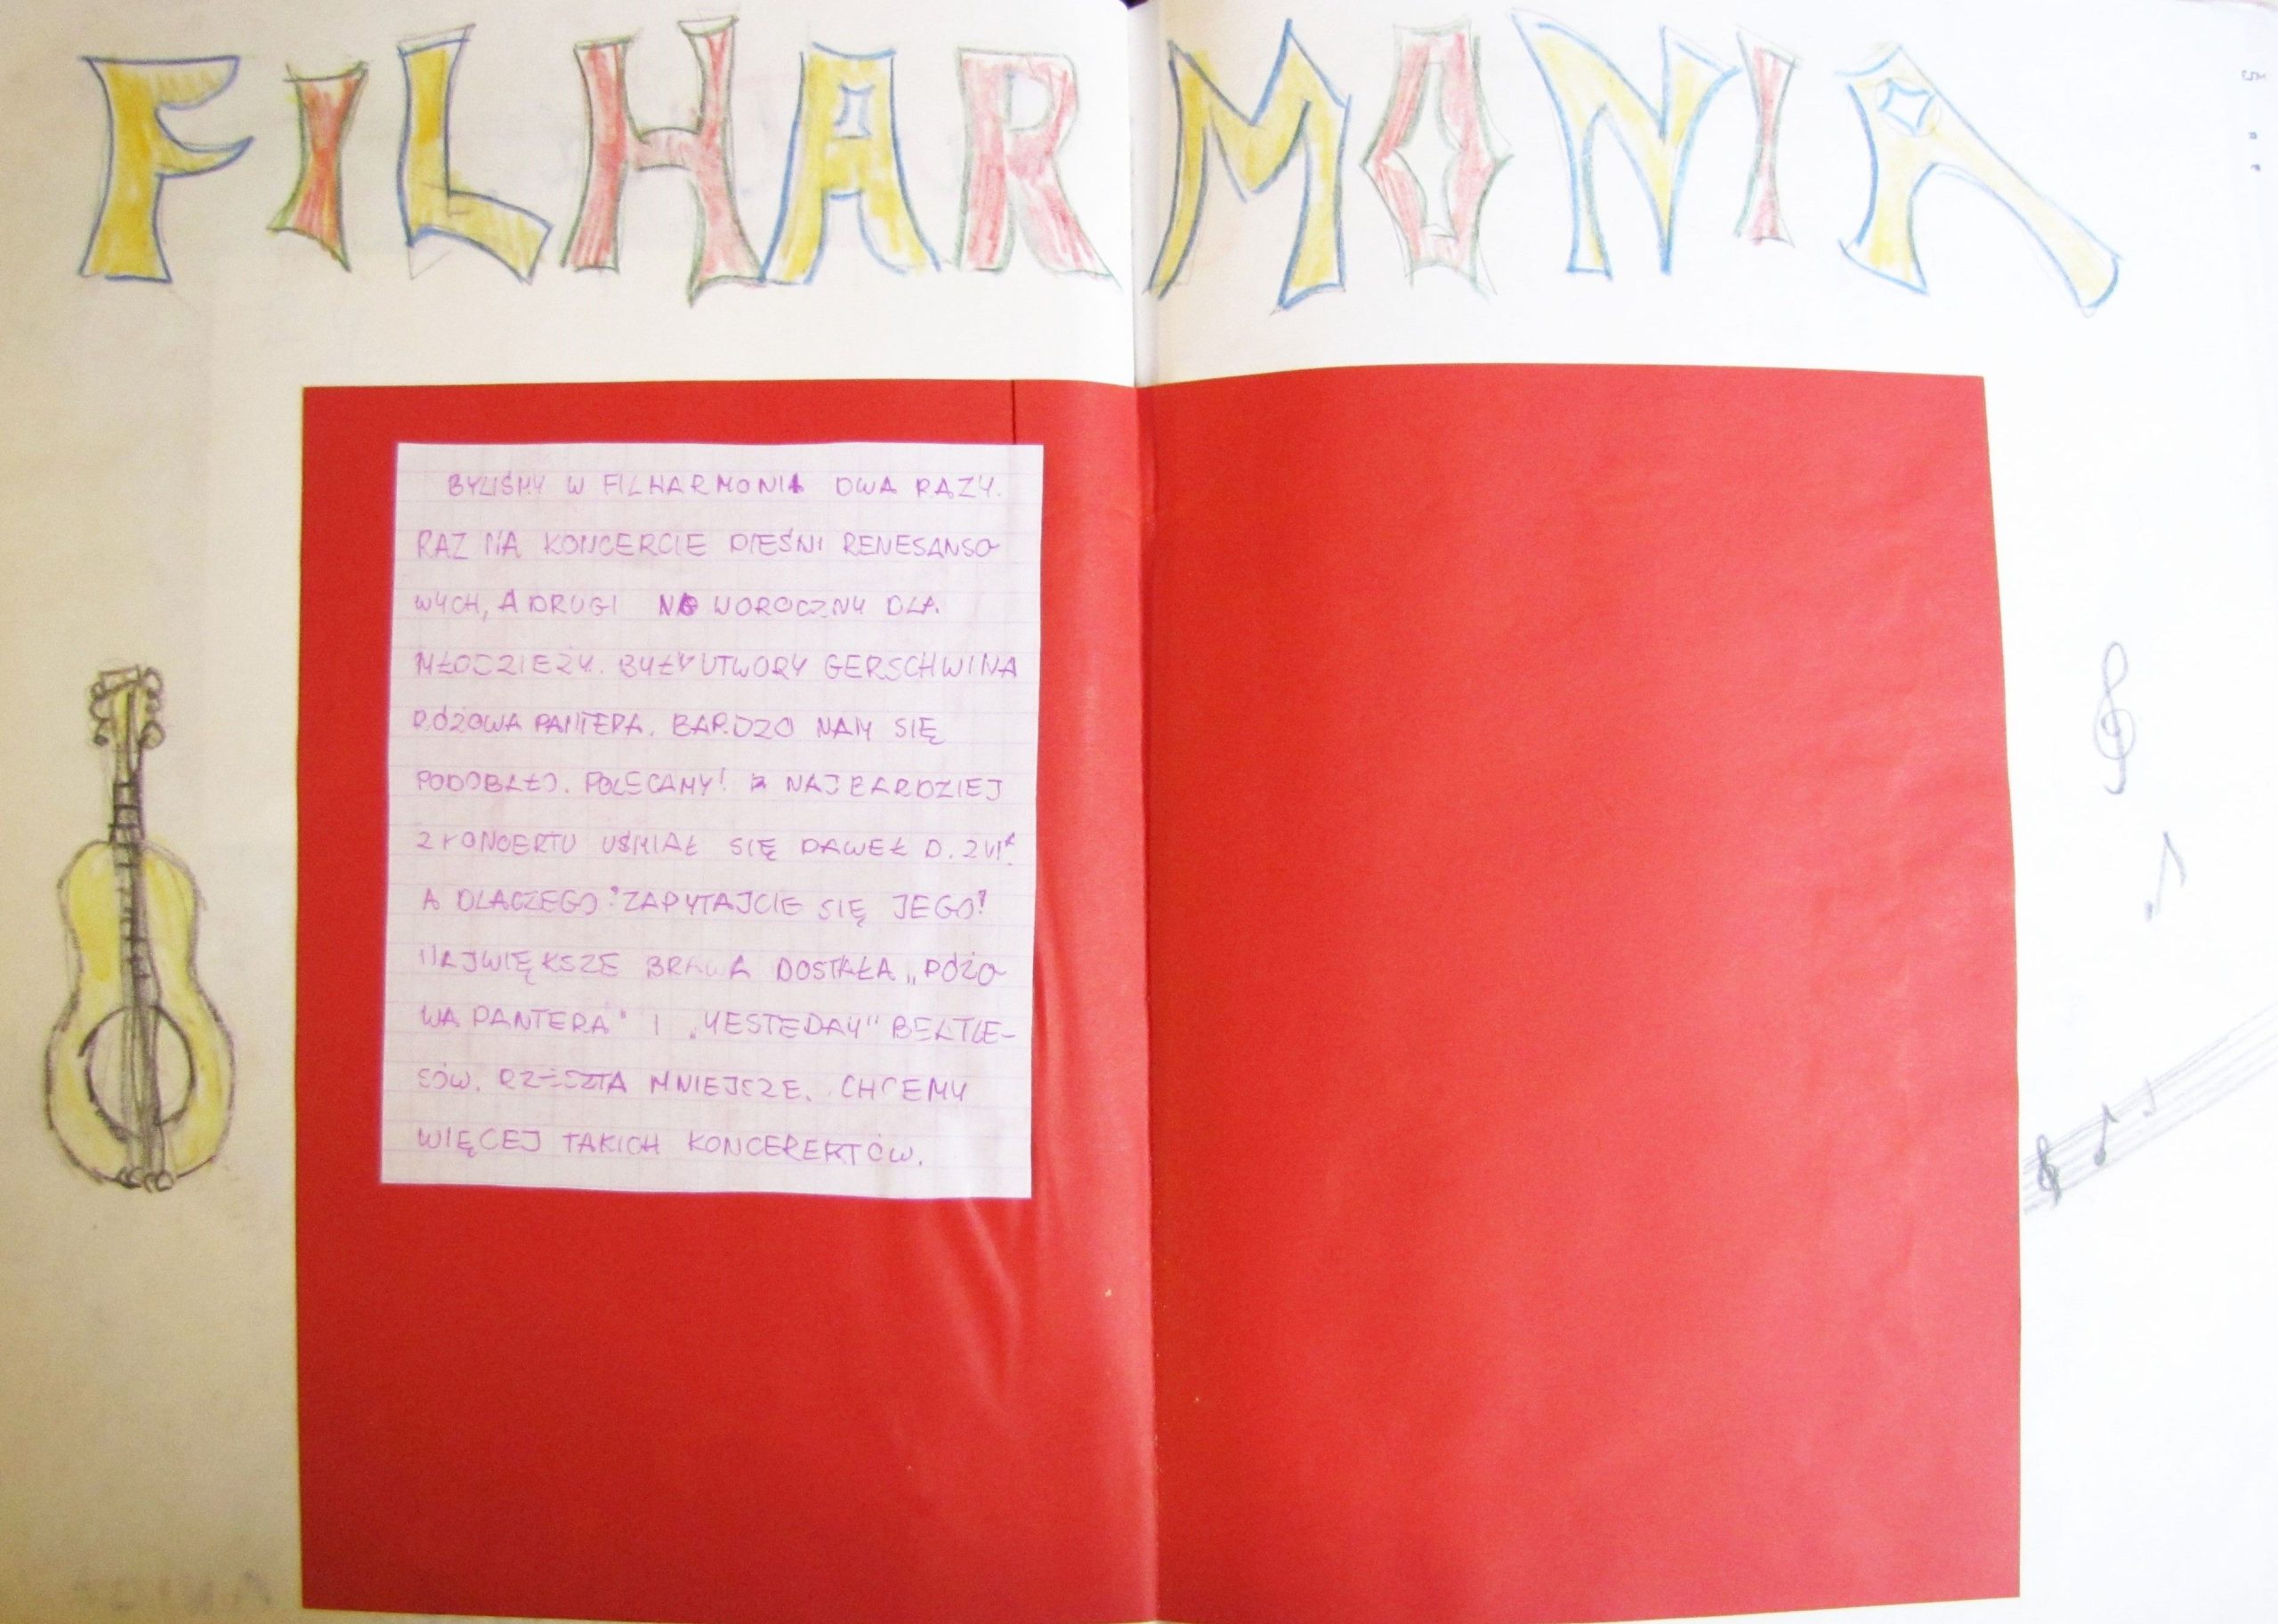 FILHARMONIA
BYLIŚMY W FILHARMONII DWA RAZY.
RAZ NA KONCERCIE PIEŚNI RENESANSO
WYCH, A DRUGI NOWOROCZNY DLA
MŁODZIEŻY. BYŁY UTWORY GERSCHWINA
RÓŻOWA PANTERA. BARDZO NAM SIĘ
PODOBAŁO. POLECAMY! NAJBARDZIEJ
Z KONCERTU UŚMIAŁ SIĘ PAWEŁ D.
A DLACZEGO? ZAPYTAJCIE SIĘ JEGO!
NAJWIĘKSZE BRAWA DOSTAŁA „RÓŻO
WA PANTERA" I „YESTEDAY" BEATLE-
SÓW. RZESZTA MNIEJSZE. CHCEMY
WIĘCEJ TAKICH KONCERERTÓW.